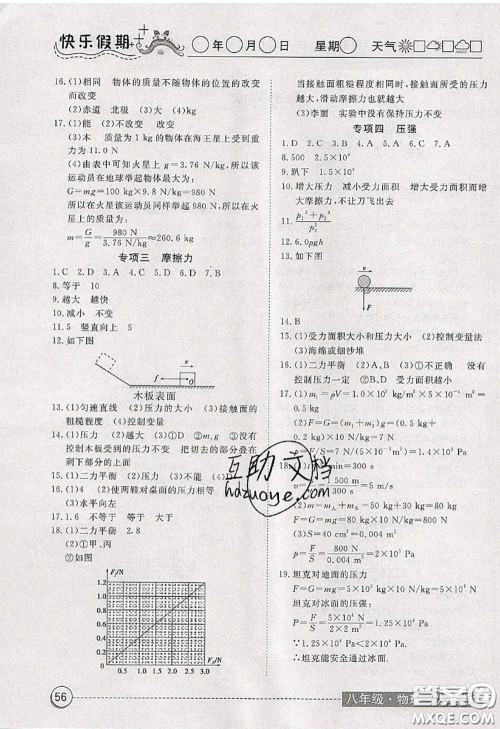 快乐假期
年 月 日 星期 天气
16.(1)相同 物体的质量不随物体的位置的改变
而改变
(2)赤道 北极 (3)大 (4)
17.(1)能 (2)不改变 改变
(3)木 质量为 1 kg 的物体在海王星上所受到
重力为 11.0 N
(4)由表中可知火星上 g=3.76 N/kg,所以该
运动员在地球举起物体最大为:
G=mg=100 kg×9.8 N/kg=980 N
所以在火星该运动员同样举起 980 N,所以在火
星上的质量为:
m=G/g=980 N/3.76 N/kg≈260.6 kg
专项三 摩擦力
1.C 2.D 3.A 4.C 5.D 6.A 7.B
8.等于 10
9.越大 越快
10.减小 不变
11.5 竖直向上 5
12.如下图
v
f
O
木板表面
13.(1)匀速直线 (2)压力的大小 (3)接触面的
粗糙程度 (4)控制变量
14.(1)压力的大小 (2)D ②m₁g ③没有
控制木板受到的压力不变 把切去的部分叠在
剩下部分的上面
15.(1)二力平衡 (2)压力 (3)不能 (4)
16.(1)4 (2)使两鞋对桌面的压力相等
(3)水平向左
17.1.6 不等于 等于 大于
18.(1)二力平衡 2.4
(2)①甲、丙
②如图
F₁/N
1.2
1.0
0.8
0.6
0.4
0.2
0
F₂/N
当接触面粗糙程度相同时,接触面所受的压力
越大,滑动摩擦力也就越大
(3)李丽 实验中没有保持压力不变
专项四 压强
1.D 2.C 3.A 4.C 5.B 6.C 7.B
8.500 2.5×10⁴
9.趴下 1.5×10⁴
10.增大压力 减小受力面积 增大受力面积而
增大摩擦,不让刀飞出去
12.6.0ρgh
13.如下图
v
F
14.B
15.(1)受力面积大小和压力大小 (2)控制变量法
(3)海绵或细沙堆
16.(1)二力平衡 A (2)(3)①不正确 没有控
制压力一定 ②B、D
17.(1)m₁=ρV=1.0×10³ kg/m³×5×10⁻⁴ m³=
0.5 kg
(2)F=G=(m₁+m₂)g=(0.5 kg+
0.2 kg)×10 N/kg=7 N
18.
=300 s
=5 m/s
(2)m=m人+m车=50 kg+30 kg=80 kg
F=G=mg=80 kg×10 N/kg=800 N
(3)S=40 cm²=0.004 m²
p=F/S=800 N/0.004 m²=2×10⁵ Pa
19.坦克对地面的压力
坦克对冰面的压强:
∵1.25×10⁵ Pa<2×10⁵ Pa
∴坦克能安全通过冰面。
互助文档
hdzuoye.com
56
八年级·物